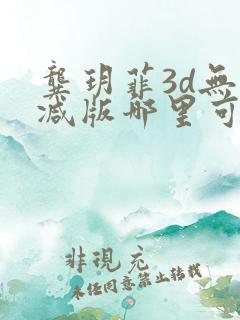 龚玥菲3d無
减版哪里可
非現充
未任同意禁止转载